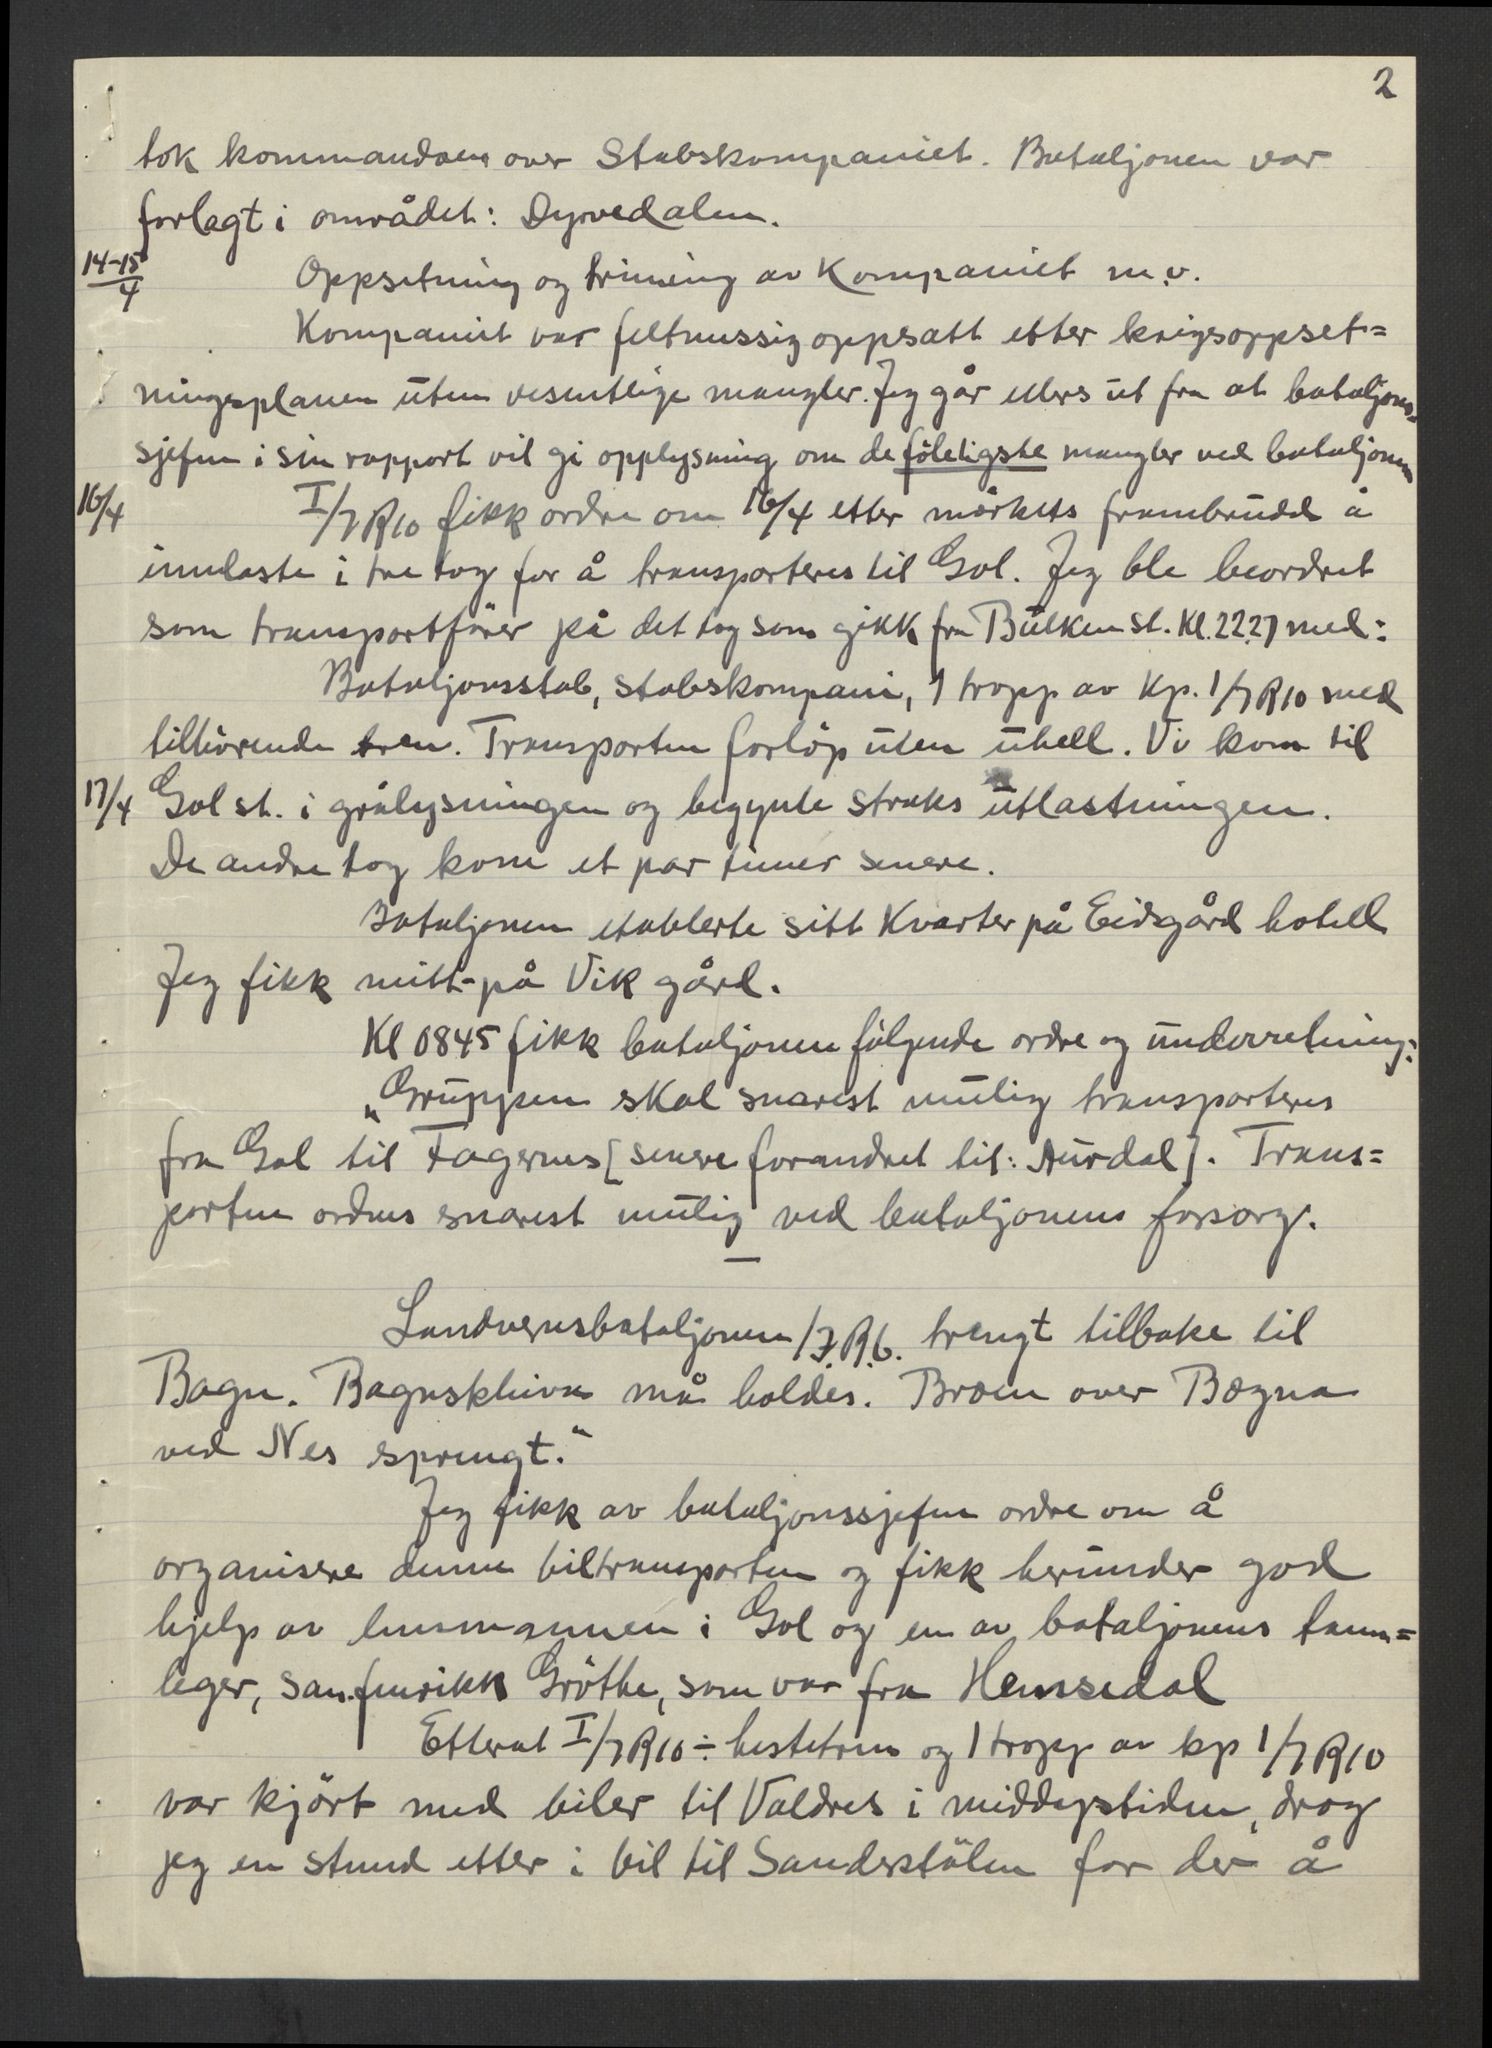 2
tok kommandoen over Stabskompaniet. Bataljonen var
forlagt i området: Dyrvedalen.
14-15/4 Oppsetning og triming av Kompaniet m.v.
Kompaniet var feltmessig oppsatt etter krigsoppset=
ningsplanen uten vesentlige mangler. Jeg går ellers ut fra at bataljons=
sjefen i sin rapport vil gi opplysning om de föleligste mangler ved bataljonen
16/4 I/IR10 fikk ordre om 16/4 etter mörkets frambrudd å
innlaste i tre tog for å transporteres til Gol. Jeg ble beordret
som transportförer på det tog som gikk fra Bulken st. Kl. 22.27 med:
Bataljonsstab, stabskompani, 1 tropp av Kp. 1/IR10 med
tilhörende tren. Transporten forlöp uten uhell. Vi kom til
17/4 Gol st. i grålysningen og begynte straks utlastningen.
De andre tog kom et par timer senere.
Bataljonen etablerte sitt Kvarter på Eidsgård hotell
Jeg fikk mitt på Vik gård.
Kl 0845 fikk bataljonen fölgende ordre og underretning:
"Gruppen skal snarest mulig transporteres
fra Gol til Fagernes [senere forandret til: Aurdal]. Trans=
porten ordnes snarest mulig ved bataljonens forsorg.
—
Landvernsbataljonen/I.R.6. trengt tilbake til
Bagn. Bagnskleiva må holdes. Broen over Bægna
ved Nes sprengt."
Jeg fikk av bataljonssjefen ordre om å
organisere denne biltransporten og fikk herunder god
hjelp av lensmannen i Gol og en av bataljonens tann=
leger, san.fenrikk Gröthe, som var fra Hemsedal
Etterat I/IR10 ÷ hestetren og 1 tropp av kp 1/IR10
var kjört med biler til Valdres i middagstiden, drog
jeg en stund etter i bil til Sanderstölen for der å